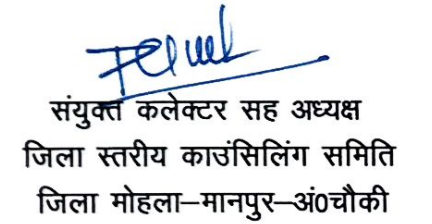 संयुक्त कलेक्टर सह अध्यक्ष
जिला स्तरीय काउंसिलिंग समिति
जिला मोहला–मानपुर–अं0चौकी